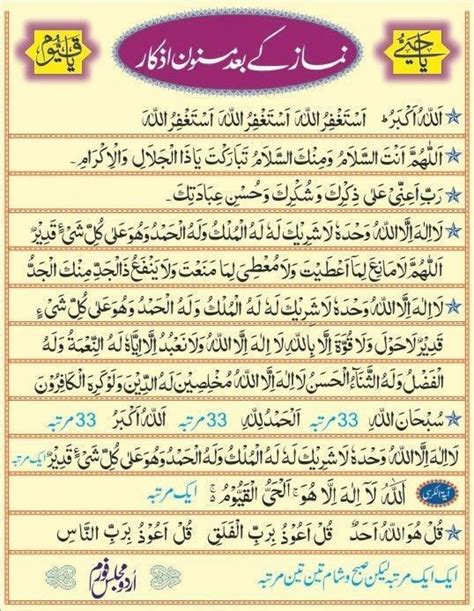 یَا حَیُّ
نماز کے بعد مسنون اذکار
یَا قَیُّوْم
اَللّٰهُ اَكْبَرُ اَسْتَغْفِرُ اللّٰهَ اَسْتَغْفِرُ اللّٰهَ اَسْتَغْفِرُ اللّٰهَ
اَللّٰهُمَّ اَنْتَ السَّلَامُ وَمِنْكَ السَّلَامُ تَبَارَكْتَ يَاذَا الْجَلَالِ وَالْاِكْرَامِ۔
رَبِّ اَعِنِّیْ عَلٰی ذِكْرِكَ وَشُكْرِكَ وَحُسْنِ عِبَادَتِكَ۔
لَا اِلٰهَ اِلَّا اللّٰهُ وَحْدَهٗ لَا شَرِيْكَ لَهٗ لَهُ الْمُلْكُ وَلَهُ الْحَمْدُ وَهُوَ عَلٰی كُلِّ شَیْءٍ قَدِيْرٌ
اَللّٰهُمَّ لَا مَانِعَ لِمَا اَعْطَيْتَ وَلَا مُعْطِیَ لِمَا مَنَعْتَ وَلَا يَنْفَعُ ذَا الْجَدِّ مِنْكَ الْجَدُّ
لَا اِلٰهَ اِلَّا اللّٰهُ وَحْدَهٗ لَا شَرِيْكَ لَهٗ لَهُ الْمُلْكُ وَلَهُ الْحَمْدُ وَهُوَ عَلٰی كُلِّ شَیْءٍ
قَدِيْرٌ لَا حَوْلَ وَلَا قُوَّةَ اِلَّا بِاللّٰهِ لَا اِلٰهَ اِلَّا اللّٰهُ وَلَا نَعْبُدُ اِلَّا اِيَّاهُ لَهُ النِّعْمَةُ وَلَهُ
الْفَضْلُ وَلَهُ الثَّنَآءُ الْحَسَنُ لَا اِلٰهَ اِلَّا اللّٰهُ مُخْلِصِيْنَ لَهُ الدِّيْنَ وَلَوْ كَرِهَ الْكَافِرُوْنَ
سُبْحَانَ اللّٰهِ 33 مرتبہ اَلْحَمْدُ لِلّٰهِ 33 مرتبہ اَللّٰهُ اَكْبَرُ 33 مرتبہ
لَا اِلٰهَ اِلَّا اللّٰهُ وَحْدَهٗ لَا شَرِيْكَ لَهٗ لَهُ الْمُلْكُ وَلَهُ الْحَمْدُ وَهُوَ عَلٰی كُلِّ شَیْءٍ قَدِيْرٌ ایک مرتبہ
آیۃ الکرسی اَللّٰهُ لَآ اِلٰهَ اِلَّا هُوَ ۚ اَلْحَیُّ الْقَيُّوْمُ ایک مرتبہ
قُلْ هُوَ اللّٰهُ اَحَدٌ قُلْ اَعُوْذُ بِرَبِّ الْفَلَقِ قُلْ اَعُوْذُ بِرَبِّ النَّاسِ
ایک ایک مرتبہ لیکن صبح و شام تین تین مرتبہ
اردو مجلس فورم